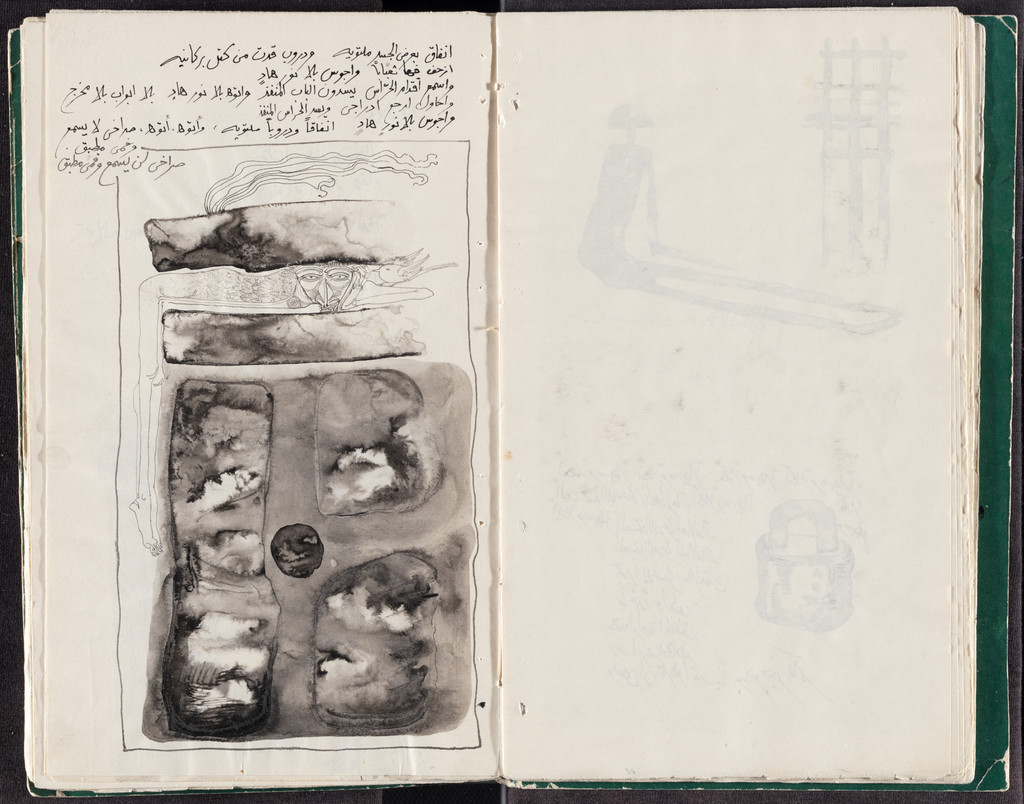 انفاق بعض الجسد ملتويه ودروب قدت من كتل بركانيه
ازحف فيها ثعباناً واجوس بلا نور هادٍ
واسمع أقدام الحراس يسدون الباب المنفذ واتوه بلا نور هادٍ بلا ابواب بلا مخرج
واحاول ارجع أدراجي ويصد الحراس المنفذ
واجوس بلا نور هادٍ انفاقاً ودروباً ملتويه، وأتوه. أتوه. صراخي لا يسمع
وفمي مطبق
صراخي لن يسمع وفمي مطبق